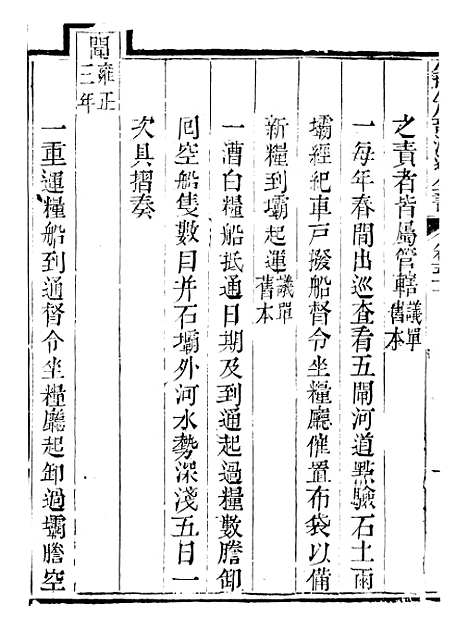 之責者皆屬管轄議單舊本
一每年春間出巡查看五閘河道點驗石土兩
壩經紀車戶撥船督令坐糧廳催置布袋以備
新糧到壩起運議單舊本
一漕白糧船抵通日期及到通起過糧數膽卸
囘空船隻數目并石壩外河水勢深淺五日一
次具摺奏
聞雍正三年
一重運糧船到通督令坐糧廳起卸過壩膽空